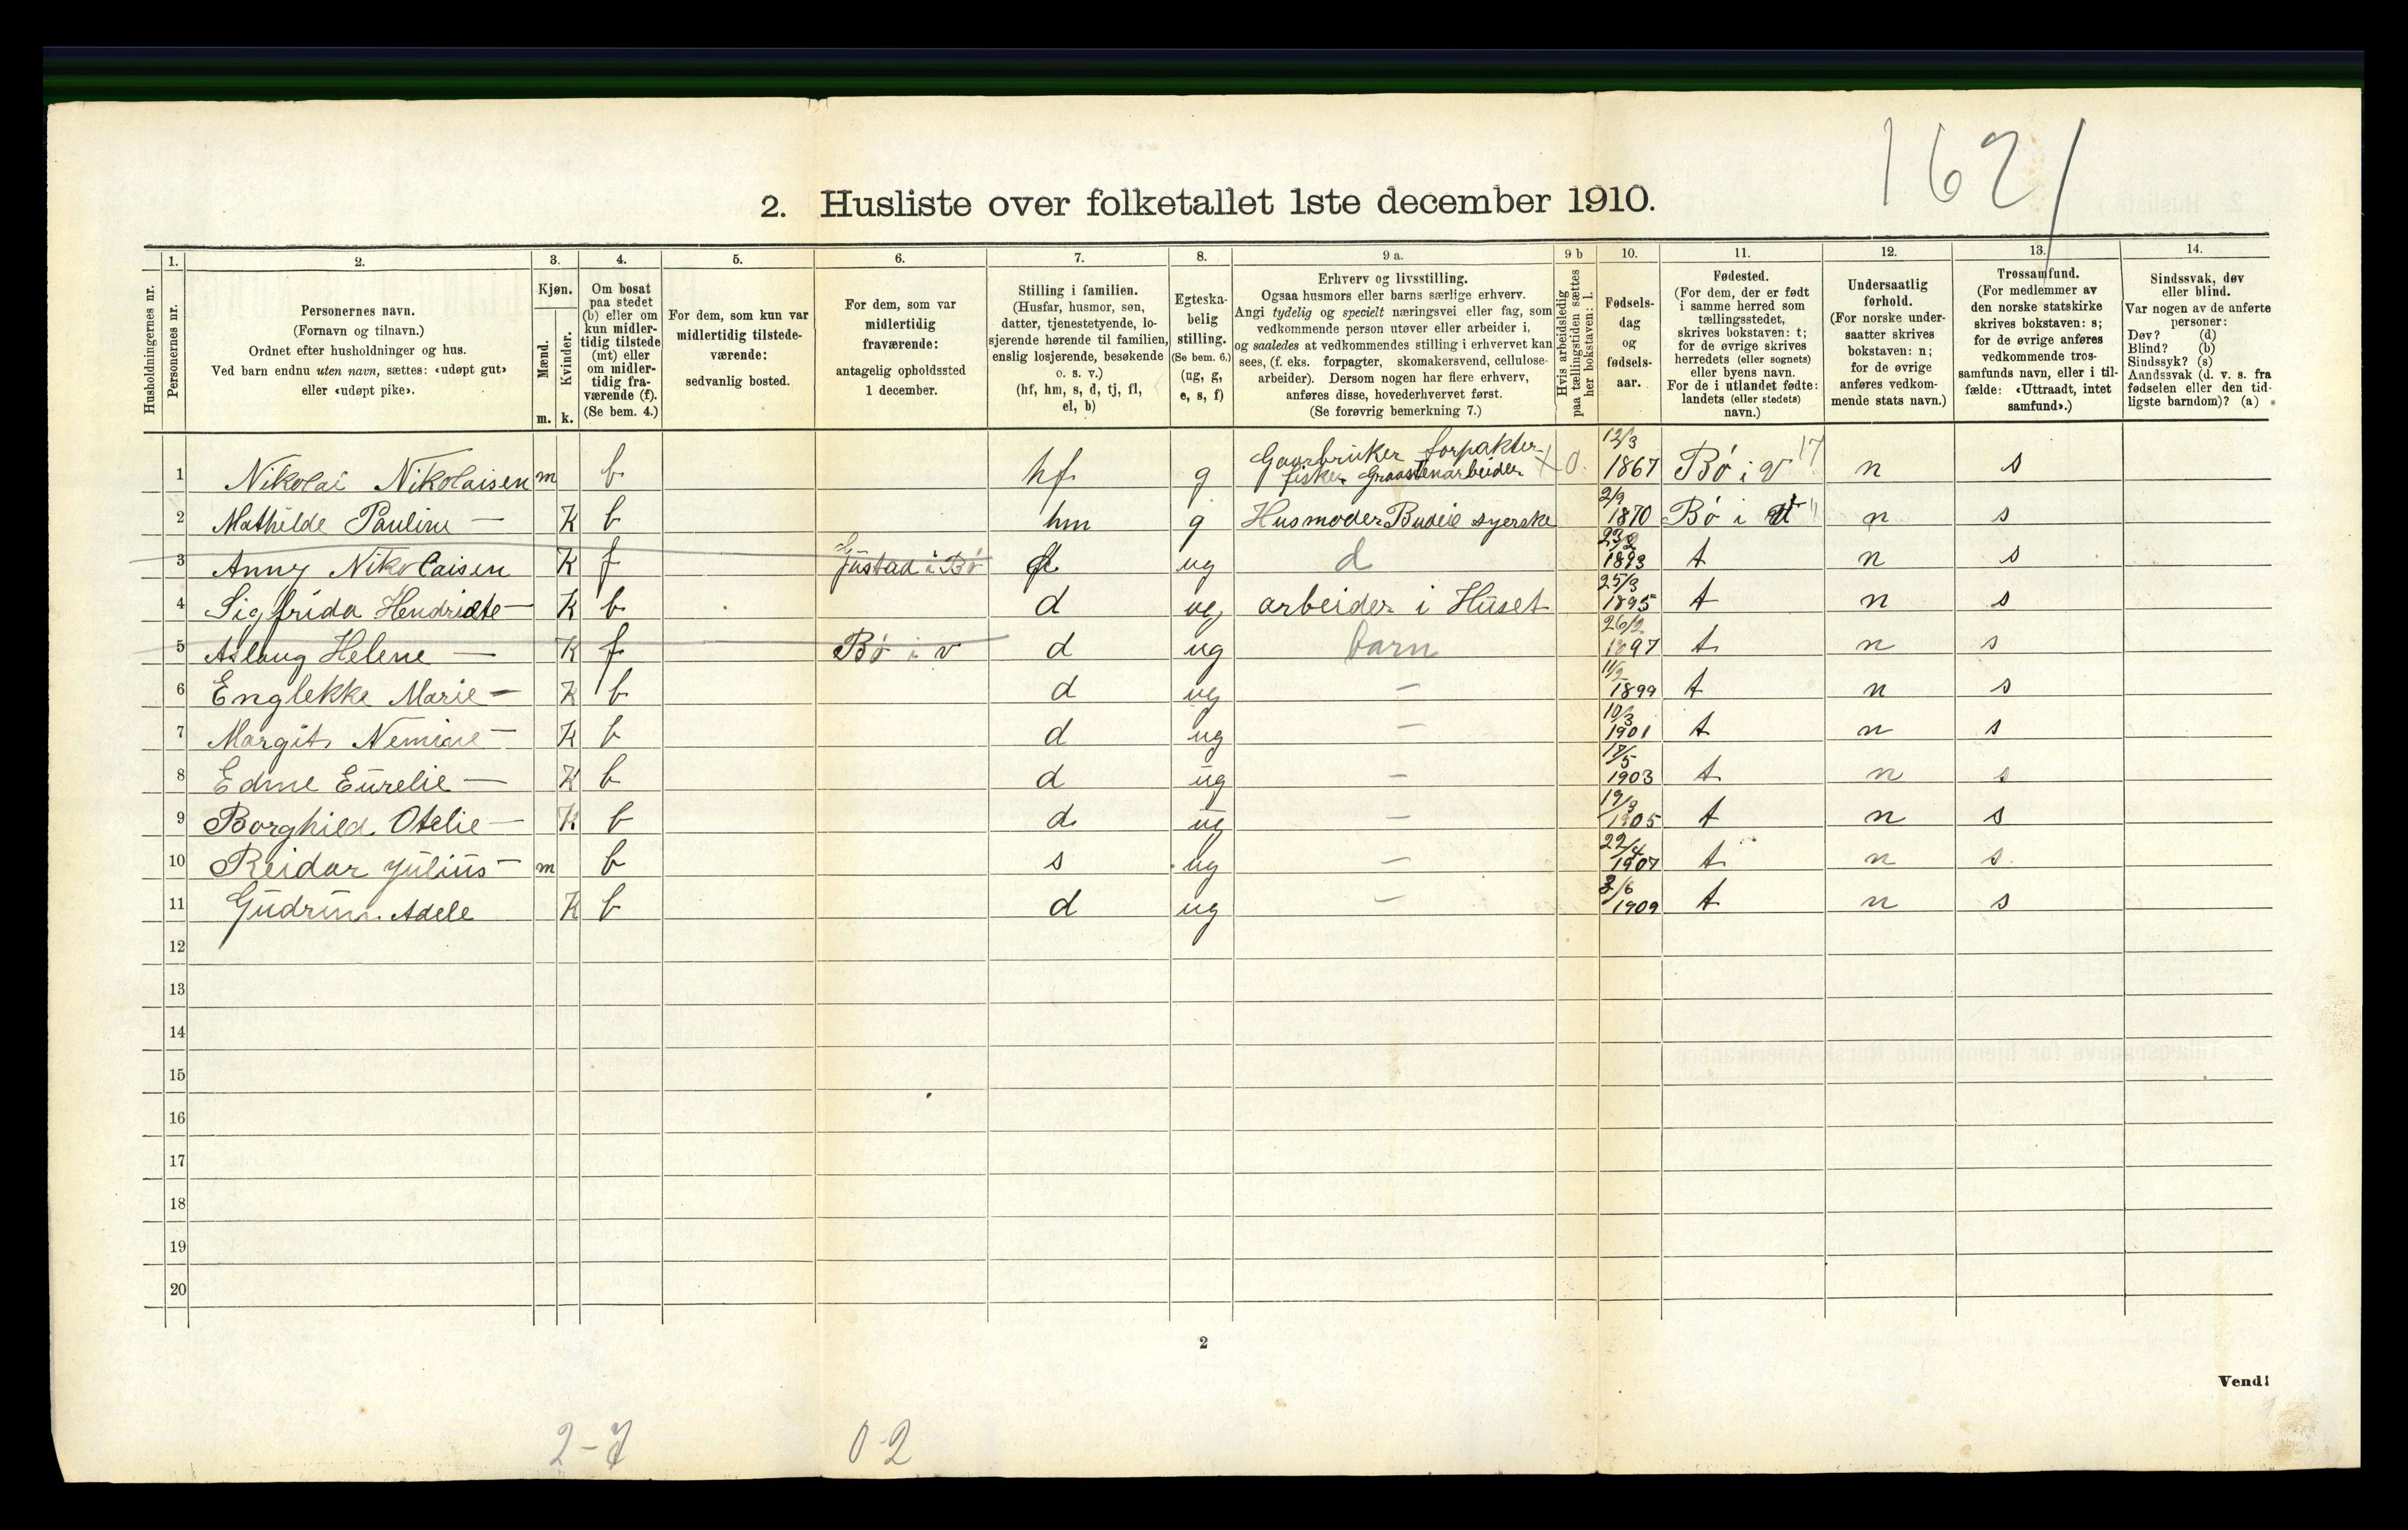 1621
2. Husliste over folketallet 1ste december 1910.
Husholdningernes nr.
1. Personernes nr.
2. Personernes navn.
(Fornavn og tilnavn.)
Ordnet efter husholdninger og hus.
Ved barn endnu uten navn, sættes: «udøpt gut»
eller «udøpt pike».
3. Kjøn.
Mænd. m.
Kvinder. k.
4. Om bosat
paa stedet
(b) eller om
kun midler-
tidig tilstede
(mt) eller
om midler-
tidig fra-
værende (f).
(Se bem. 4.)
5. For dem, som kun var
midlertidig tilstede-
værende:
sedvanlig bosted.
6. For dem, som var
midlertidig
fraværende:
antagelig opholdssted
1 december.
7. Stilling i familien.
(Husfar, husmor, søn,
datter, tjenestetyende, lo-
sjerende hørende til familien,
enslig losjerende, besøkende
o. s. v.)
(hf, hm, s, d, tj, fl,
el, b)
8. Egteska-
belig
stilling.
(Se bem. 6.)
(ug, g,
e, s, f)
9 a. Erhverv og livsstilling.
Ogsaa husmors eller barns særlige erhverv.
Angi tydelig og specielt næringsvei eller fag, som
vedkommende person utøver eller arbeider i,
og saaledes at vedkommendes stilling i erhvervet kan
sees, (f. eks. forpagter, skomakersvend, cellulose-
arbeider). Dersom nogen har flere erhverv,
anføres disse, hovederhvervet først.
(Se forøvrig bemerkning 7.)
9 b Hvis arbeidsledig
paa tællingstiden sættes
her bokstaven: l.
10. Fødsels-
dag
og
fødsels-
aar.
11. Fødested.
(For dem, der er født
i samme herred som
tællingsstedet,
skrives bokstaven: t;
for de øvrige skrives
herredets (eller sognets)
eller byens navn.
For de i utlandet fødte:
landets (eller stedets)
navn.)
12. Undersaatlig
forhold.
(For norske under-
saatter skrives
bokstaven: n;
for de øvrige
anføres vedkom-
mende stats navn.)
13. Trossamfund.
(For medlemmer av
den norske statskirke
skrives bokstaven: s;
for de øvrige anføres
vedkommende tros-
samfunds navn, eller i til-
fælde: «Uttraadt, intet
samfund».)
14. Sindssvak, døv
eller blind.
Var nogen av de anførte
personer:
Døv? (d)
Blind? (b)
Sindssyk? (s)
Aandssvak (d. v. s. fra
fødselen eller den tid-
ligste barndom)? (a)
1 Nikolai Nikolaisen m b hf g Gaarbruker forpakter fisker Graastenarbeider X 0. 12/3 1867 Bø i V 17 n s
2 Mathilde Pauline — K b hm g Husmoder Budeie syerske 2/9 1870 Bø i V " n s
3 Anny Nikolaisen K f Jüstad i Bø d ug d 1893 t n s
4 Sigfrida — K b d ug arbeider i Hüset 25/3 1895 t n s
5 Aslaug Helene — K f Bø i v d ug barn 26/2 1897 t n s
6 Englekke Marie — K b d ug — 11/2 1899 t n s
7 Margit — K b d ug — 10/3 1901 t n s
8 Edine Eürelie — K b d ug — 17/5 1903 t n s
9 Borghild Otelie — K b d ug — 19/3 1905 t n s
10 Reidar Jülius — m b s ug — 22/4 1907 t n s
11 Güdrün Adele K b d ug — 1909 t n s
12
13
14
15
16
17
18
19
20
2
Vend!
2-7 0-2